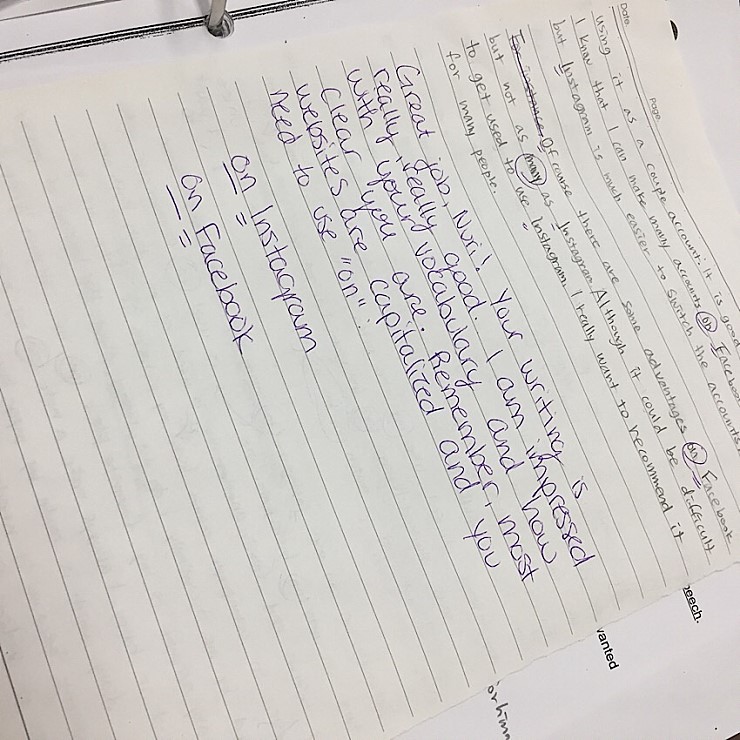 Date
Page
using it as a couple account. It is good
I know that I can make many accounts on Facebook
but Instagram is much easier to switch the accounts.
For instance, Of cause there are some advantages on Facebook
but not as many as Instagram. Although it could be difficult
to get used to use Instagram, I really want to recommend it
for many people.
Great job, Nuri! Your writing is
really, really good. I am impressed
with your vocabulary and how
clear you are. Remember, most
websites are capitalized and you
need to use "on".
on Instagram
on Facebook
eech.
wanted
or him